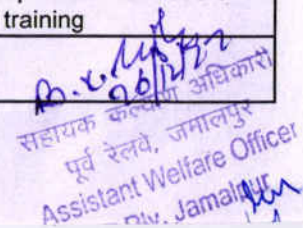 training
26/12/22
सहायक कल्याण अधिकारी
पूर्व रेलवे, जमालपुर
Assistant Welfare Officer
Jamalpur